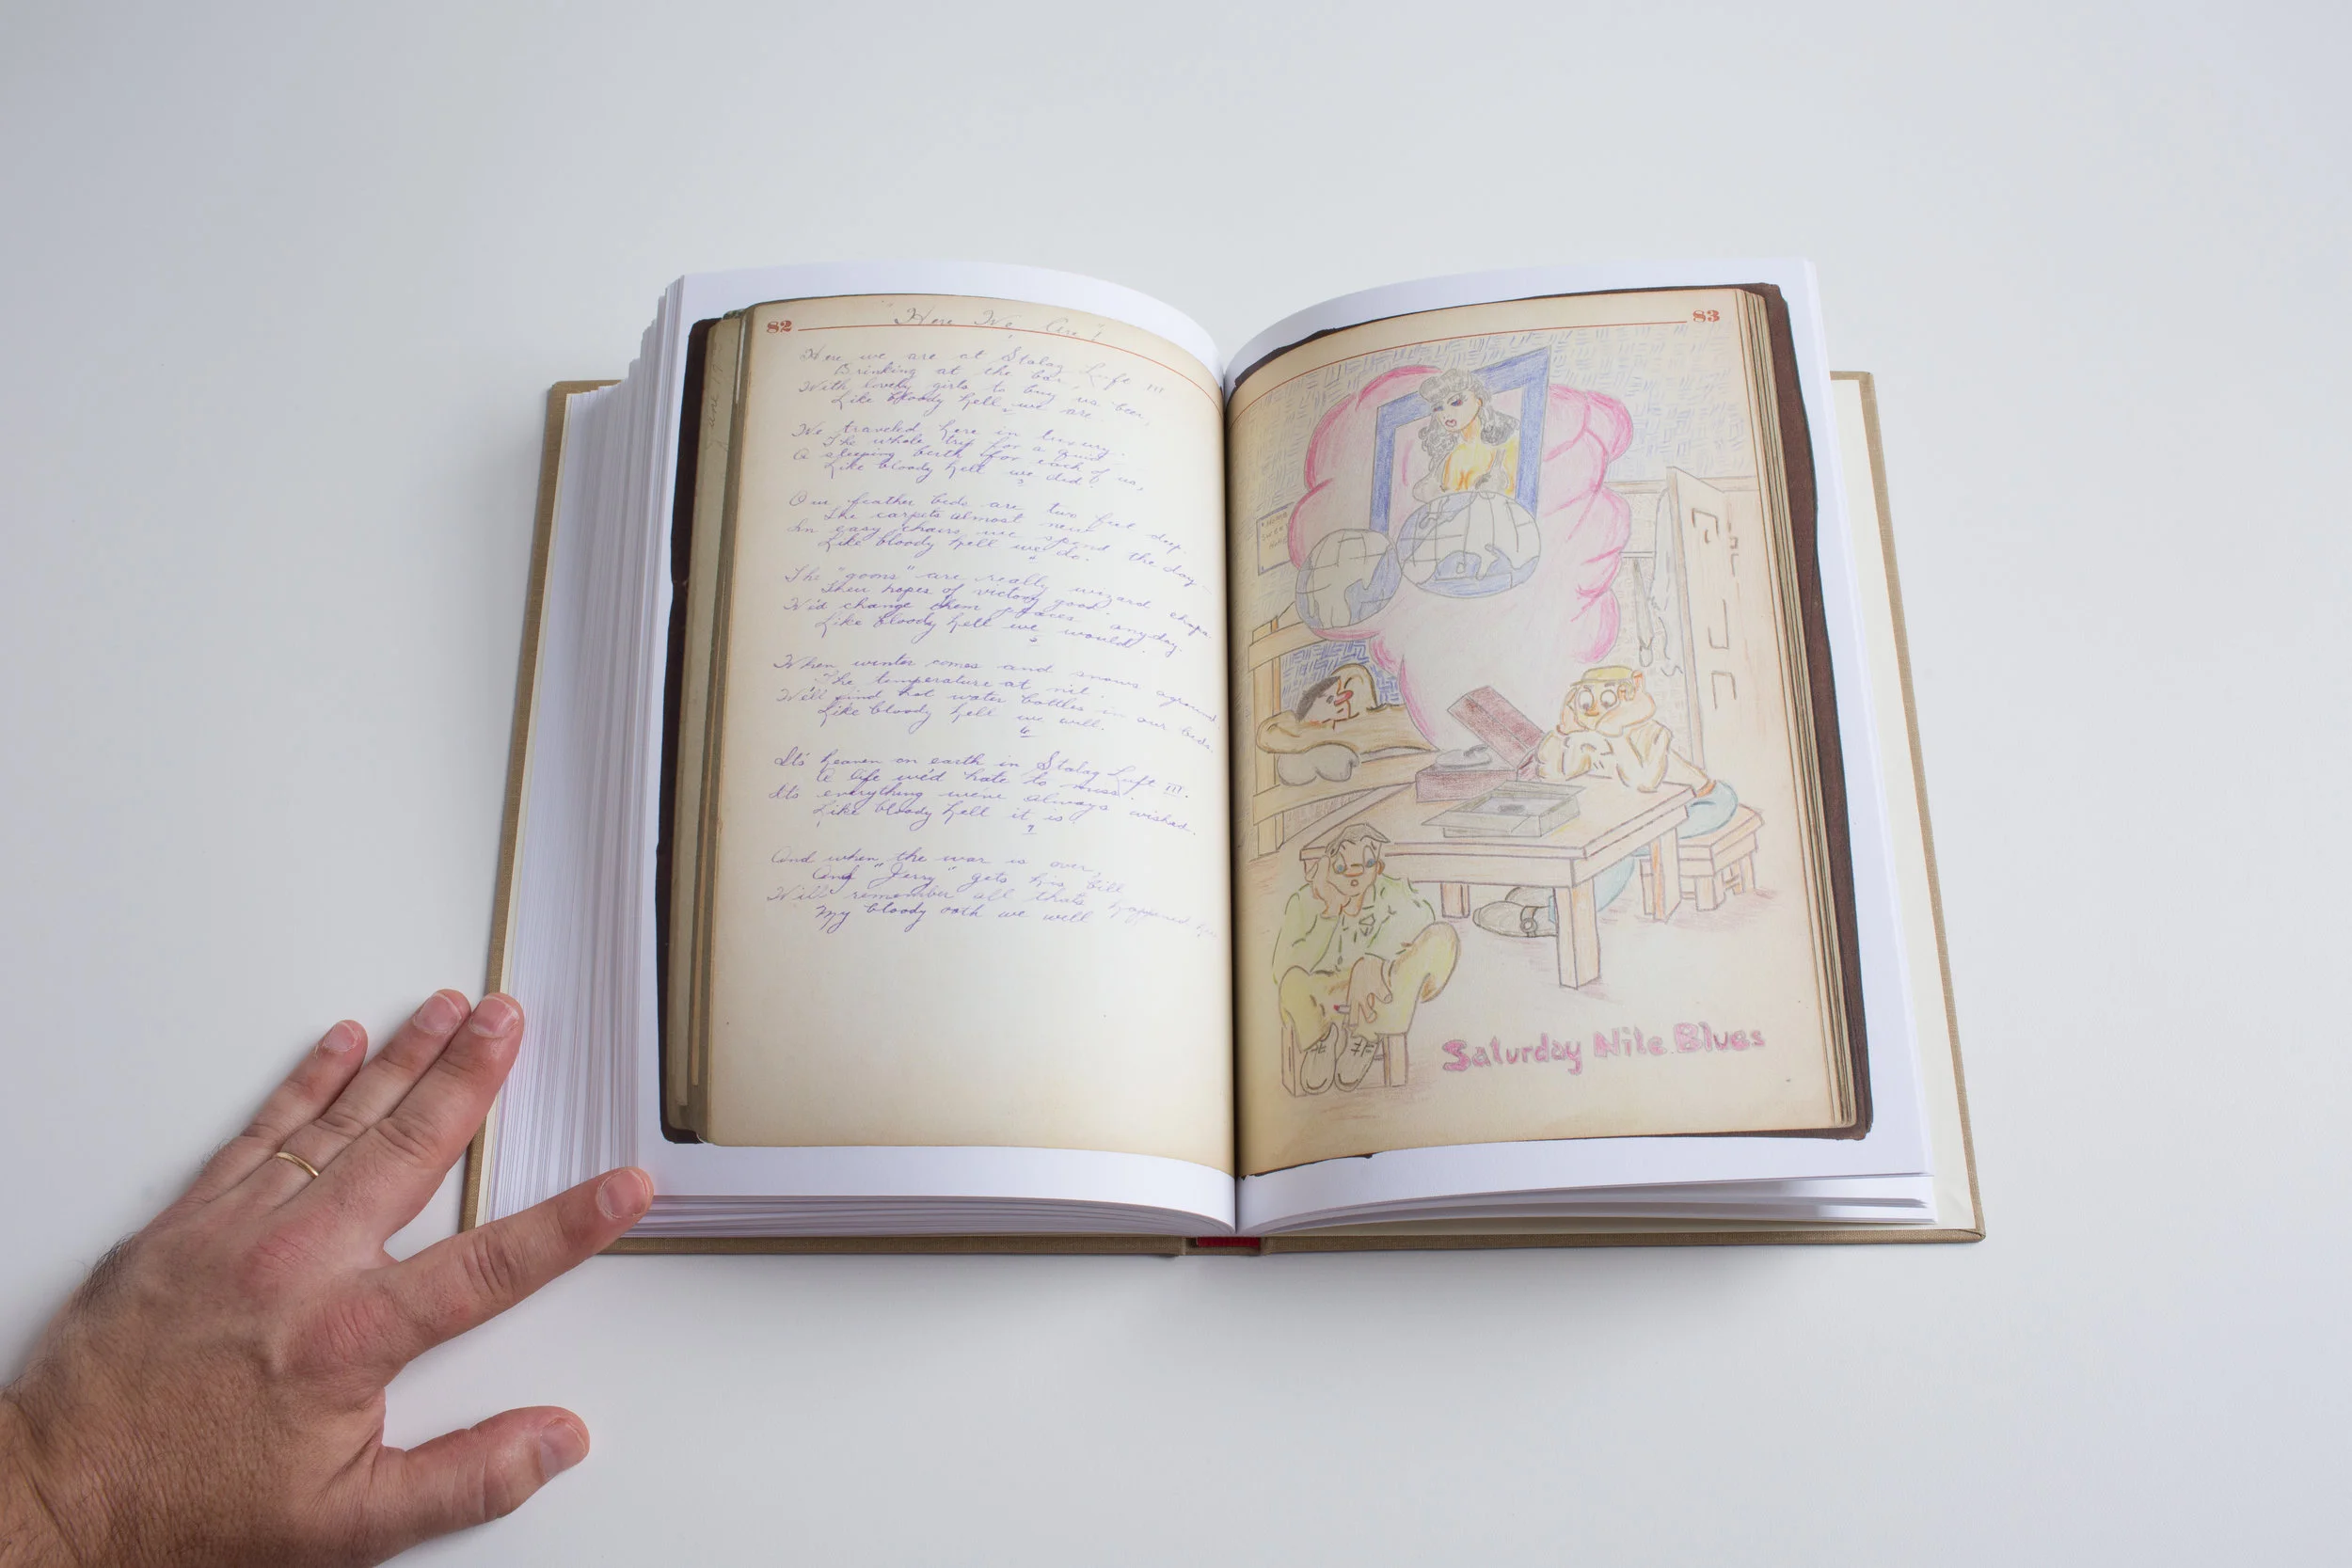 82
"Here We Are"!
Here we are at Stalag Luft III
Drinking at the bar,
With lovely girls to buy us beer,
Like bloody hell we are.
2
We traveled here in luxury.
The whole trip for a quid
A sleeping berth for each of us,
Like bloody hell we did!
3
Our feather beds are two feet deep.
The carpets almost new
In easy chairs we spend the day—
Like bloody hell we do.
4
The "goons" are really wizard chaps
Their hopes of victory good
We'd change them places anyday.
Like bloody hell we would.
5
When winter comes and snows aground
The temperature at nil.
We'll find hot water bottles in our beds.
Like bloody hell we will.
6
It's heaven on earth in Stalag Luft III.
A life we'd hate to miss
It's everything we've always wished.
Like bloody hell it is.
7
And when the war is over,
And "Jerry" gets his bill
We'll remember all thats happened
My bloody oath we will
83
HOME
SWEET
Saturday Nite Blues